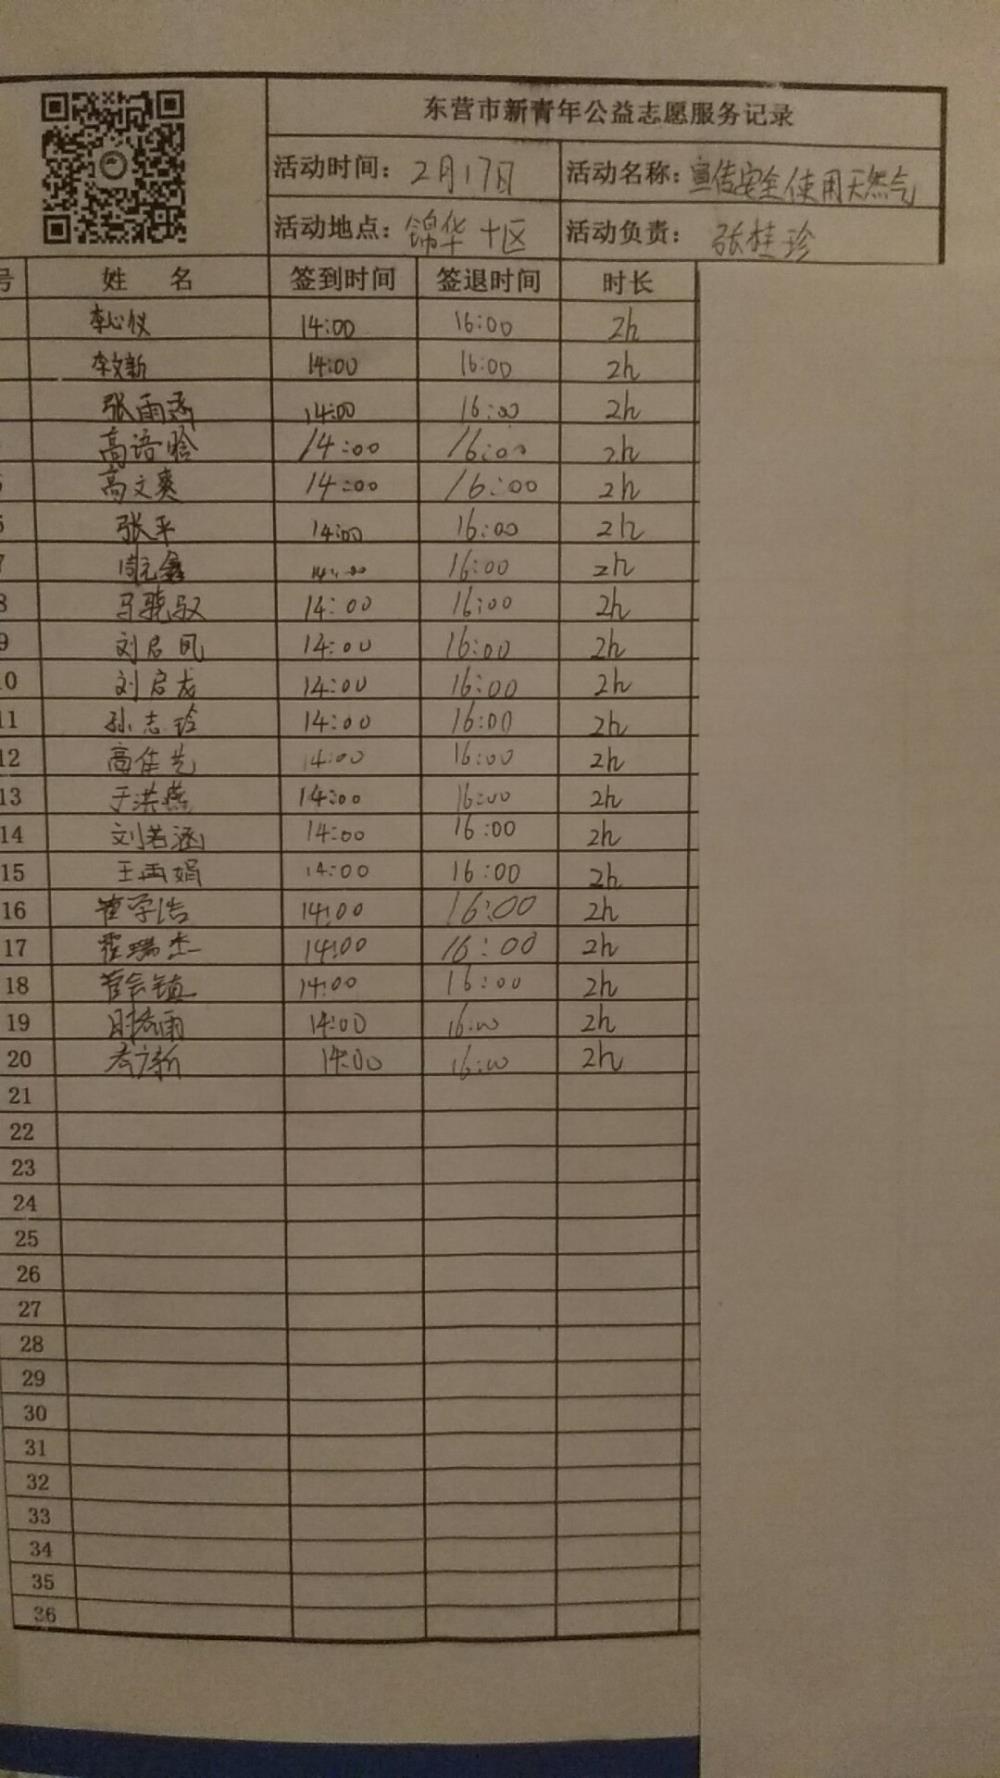 东营市新青年公益志愿服务记录
活动时间: 2月17日 活动名称: 宣传安全使用天然气
活动地点: 锦华十区 活动负责: 张桂珍
号 姓 名 签到时间 签退时间 时长
李心仪 14:00 16:00 2h
李文新 14:00 16:00 2h
张雨涵 14:00 16:00 2h
高语晗 14:00 16:00 2h
高文爽 14:00 16:00 2h
张平 14:00 16:00 2h
7 14:00 16:00 2h
8 马骁驭 14:00 16:00 2h
9 刘启凤 14:00 16:00 2h
10 刘启龙 14:00 16:00 2h
11 孙志玲 14:00 16:00 2h
12 高佳艺 14:00 16:00 2h
13 于洪燕 14:00 16:00 2h
14 刘若涵 14:00 16:00 2h
15 王再娟 14:00 16:00 2h
16 崔学浩 14:00 16:00 2h
17 霍瑞杰 14:00 16:00 2h
18 14:00 16:00 2h
19 14:00 16:00 2h
20 14:00 16:00 2h
21
22
23
24
25
26
27
28
29
30
31
32
33
34
35
36